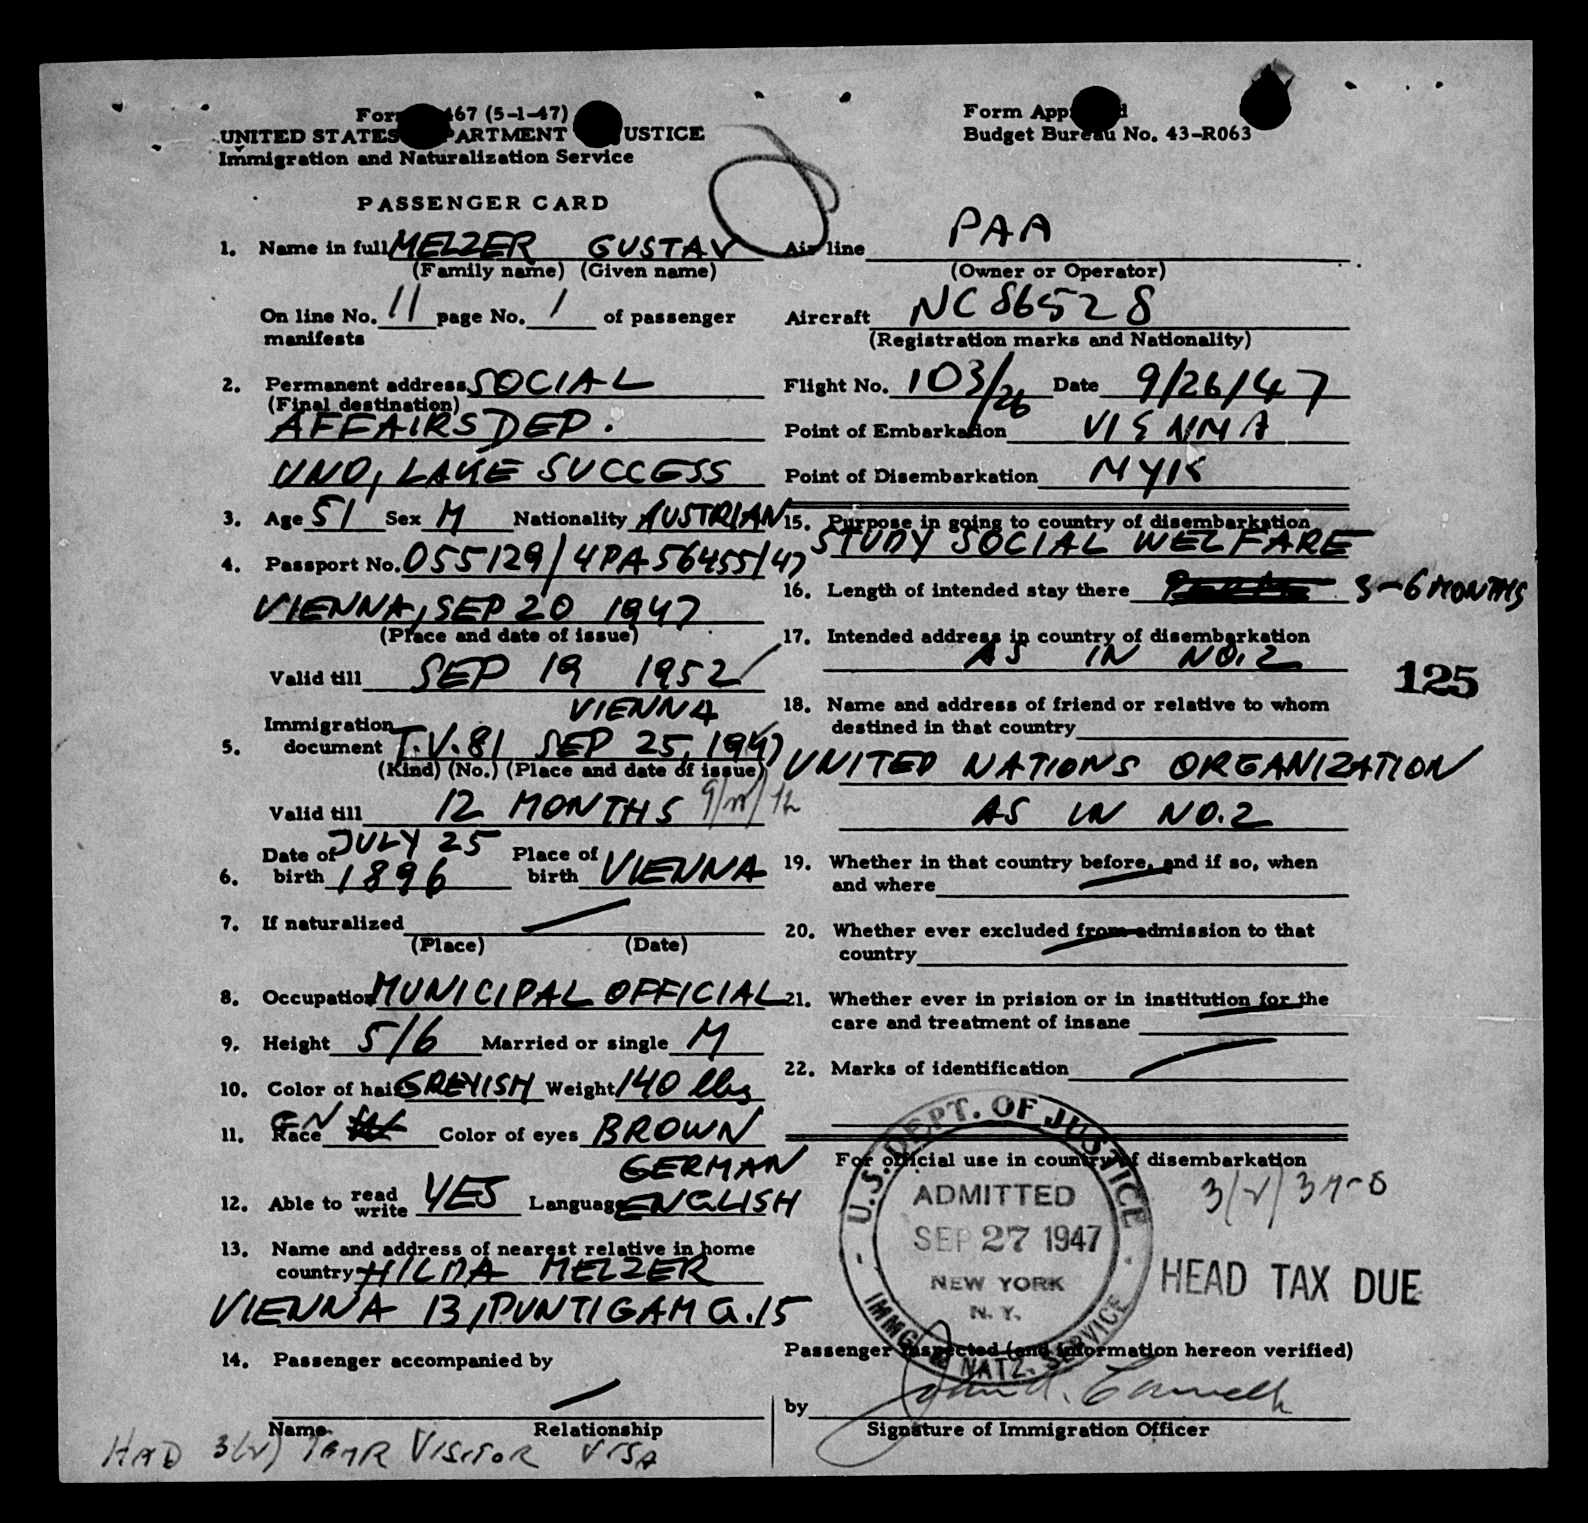 Form 467 (5-1-47)
UNITED STATES DEPARTMENT JUSTICE
Immigration and Naturalization Service
PASSENGER CARD
Form Approved
Budget Bureau No. 43-R063
1. Name in full MELZER GUSTAV
(Family name) (Given name)
On line No. 11 page No. 1 of passenger
manifests
2. Permanent address SOCIAL
(Final destination)
AFFAIRS DEP.
UNO, LAKE SUCCESS
3. Age 51 Sex M Nationality AUSTRIAN
4. Passport No. 055129/4PA56455/47
VIENNA, SEP 20 1947
(Place and date of issue)
Valid till SEP 19 1952
VIENNA
5. Immigration
document T.V.81 SEP 25, 1947
(Kind) (No.) (Place and date of issue)
Valid till 12 MONTHS
6. Date of birth JULY 25 1896 Place of birth VIENNA
7. If naturalized
(Place) (Date)
8. Occupation MUNICIPAL OFFICIAL
9. Height 5/6 Married or single M
10. Color of hair GREYISH Weight 140 lbs
11. Race GN Color of eyes BROWN
GERMAN
12. Able to read write YES Language ENGLISH
13. Name and address of nearest relative in home
country HILDA MELZER
VIENNA 13, PUNTIGAM G. 15
14. Passenger accompanied by
Name Relationship
HAD 3(2) TEMR VISITOR VISA
Air line PAA
(Owner or Operator)
Aircraft NC 86528
(Registration marks and Nationality)
Flight No. 103/26 Date 9/26/47
Point of Embarkation VIENNA
Point of Disembarkation NYK
15. Purpose in going to country of disembarkation
STUDY SOCIAL WELFARE
16. Length of intended stay there 3-6 MONTHS
17. Intended address in country of disembarkation
AS IN NO. 2
125
18. Name and address of friend or relative to whom
destined in that country
UNITED NATIONS ORGANIZATION
AS IN NO. 2
19. Whether in that country before, and if so, when
and where
20. Whether ever excluded from admission to that
country
21. Whether ever in prision or in institution for the
care and treatment of insane
22. Marks of identification
For official use in country of disembarkation
U.S. DEPT. OF JUSTICE
ADMITTED
SEP 27 1947
NEW YORK
N. Y.
IMMG. & NATZ. SERVICE
HEAD TAX DUE
Passenger inspected (and information hereon verified)
by
Signature of Immigration Officer